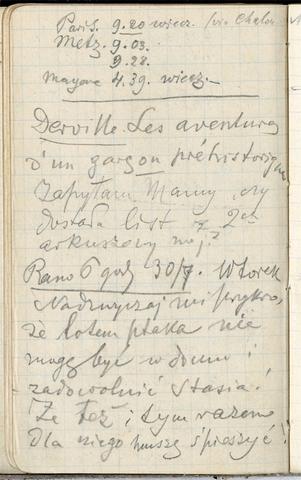 Paris. 9.20 wiecz. (via Chalon
Metz. 9.03.
9.28.
Mayence 4.39. wiecz.
Derville. Les aventures
d'un garçon préhistorique
Zapytam Mamy, czy
dostała list z 2ch
arkuszowy mój?
Rano 6 godz 30/7. Wtorek
Nadzwyczaj mi przykro,
że lotem ptaka nie
mogę być w domu i
zadowolnić Stasia!
Że też i tym razem
dla niego muszę śpieszyć!